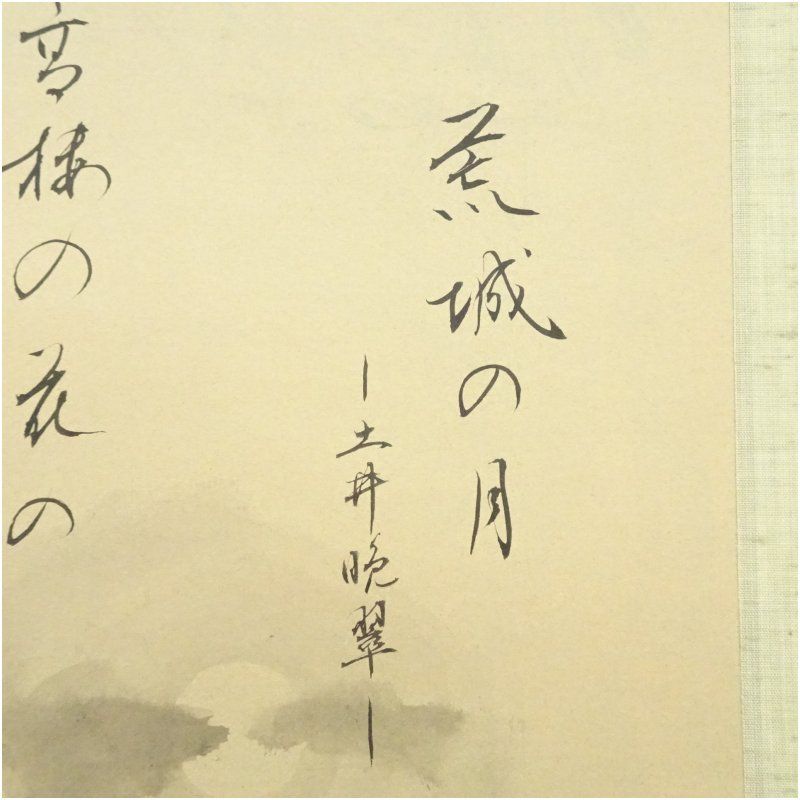 荒城の月
ー土井晩翠ー
高楼の花の